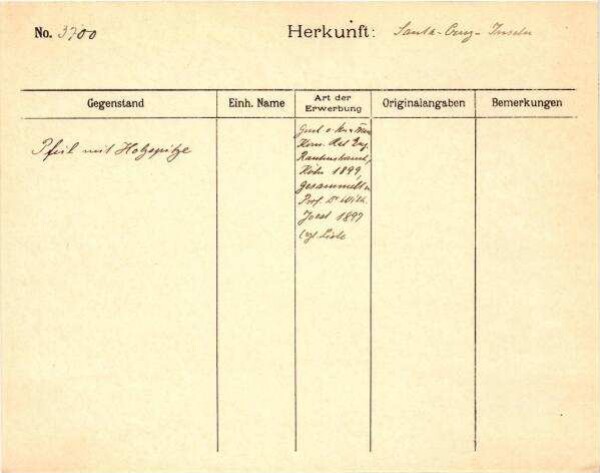 No. 3700 Herkunft: Santa-Cruz-Inseln
Gegenstand Einh. Name Art der Erwerbung Originalangaben Bemerkungen
Pfeil mit Holzspitze
Frau
Kom. Rat Eug.
Rautenstrauch,
Köln 1899,
gesammelt v.
Prof. Dr Wilh.
Joest 1897
vgl. Liste